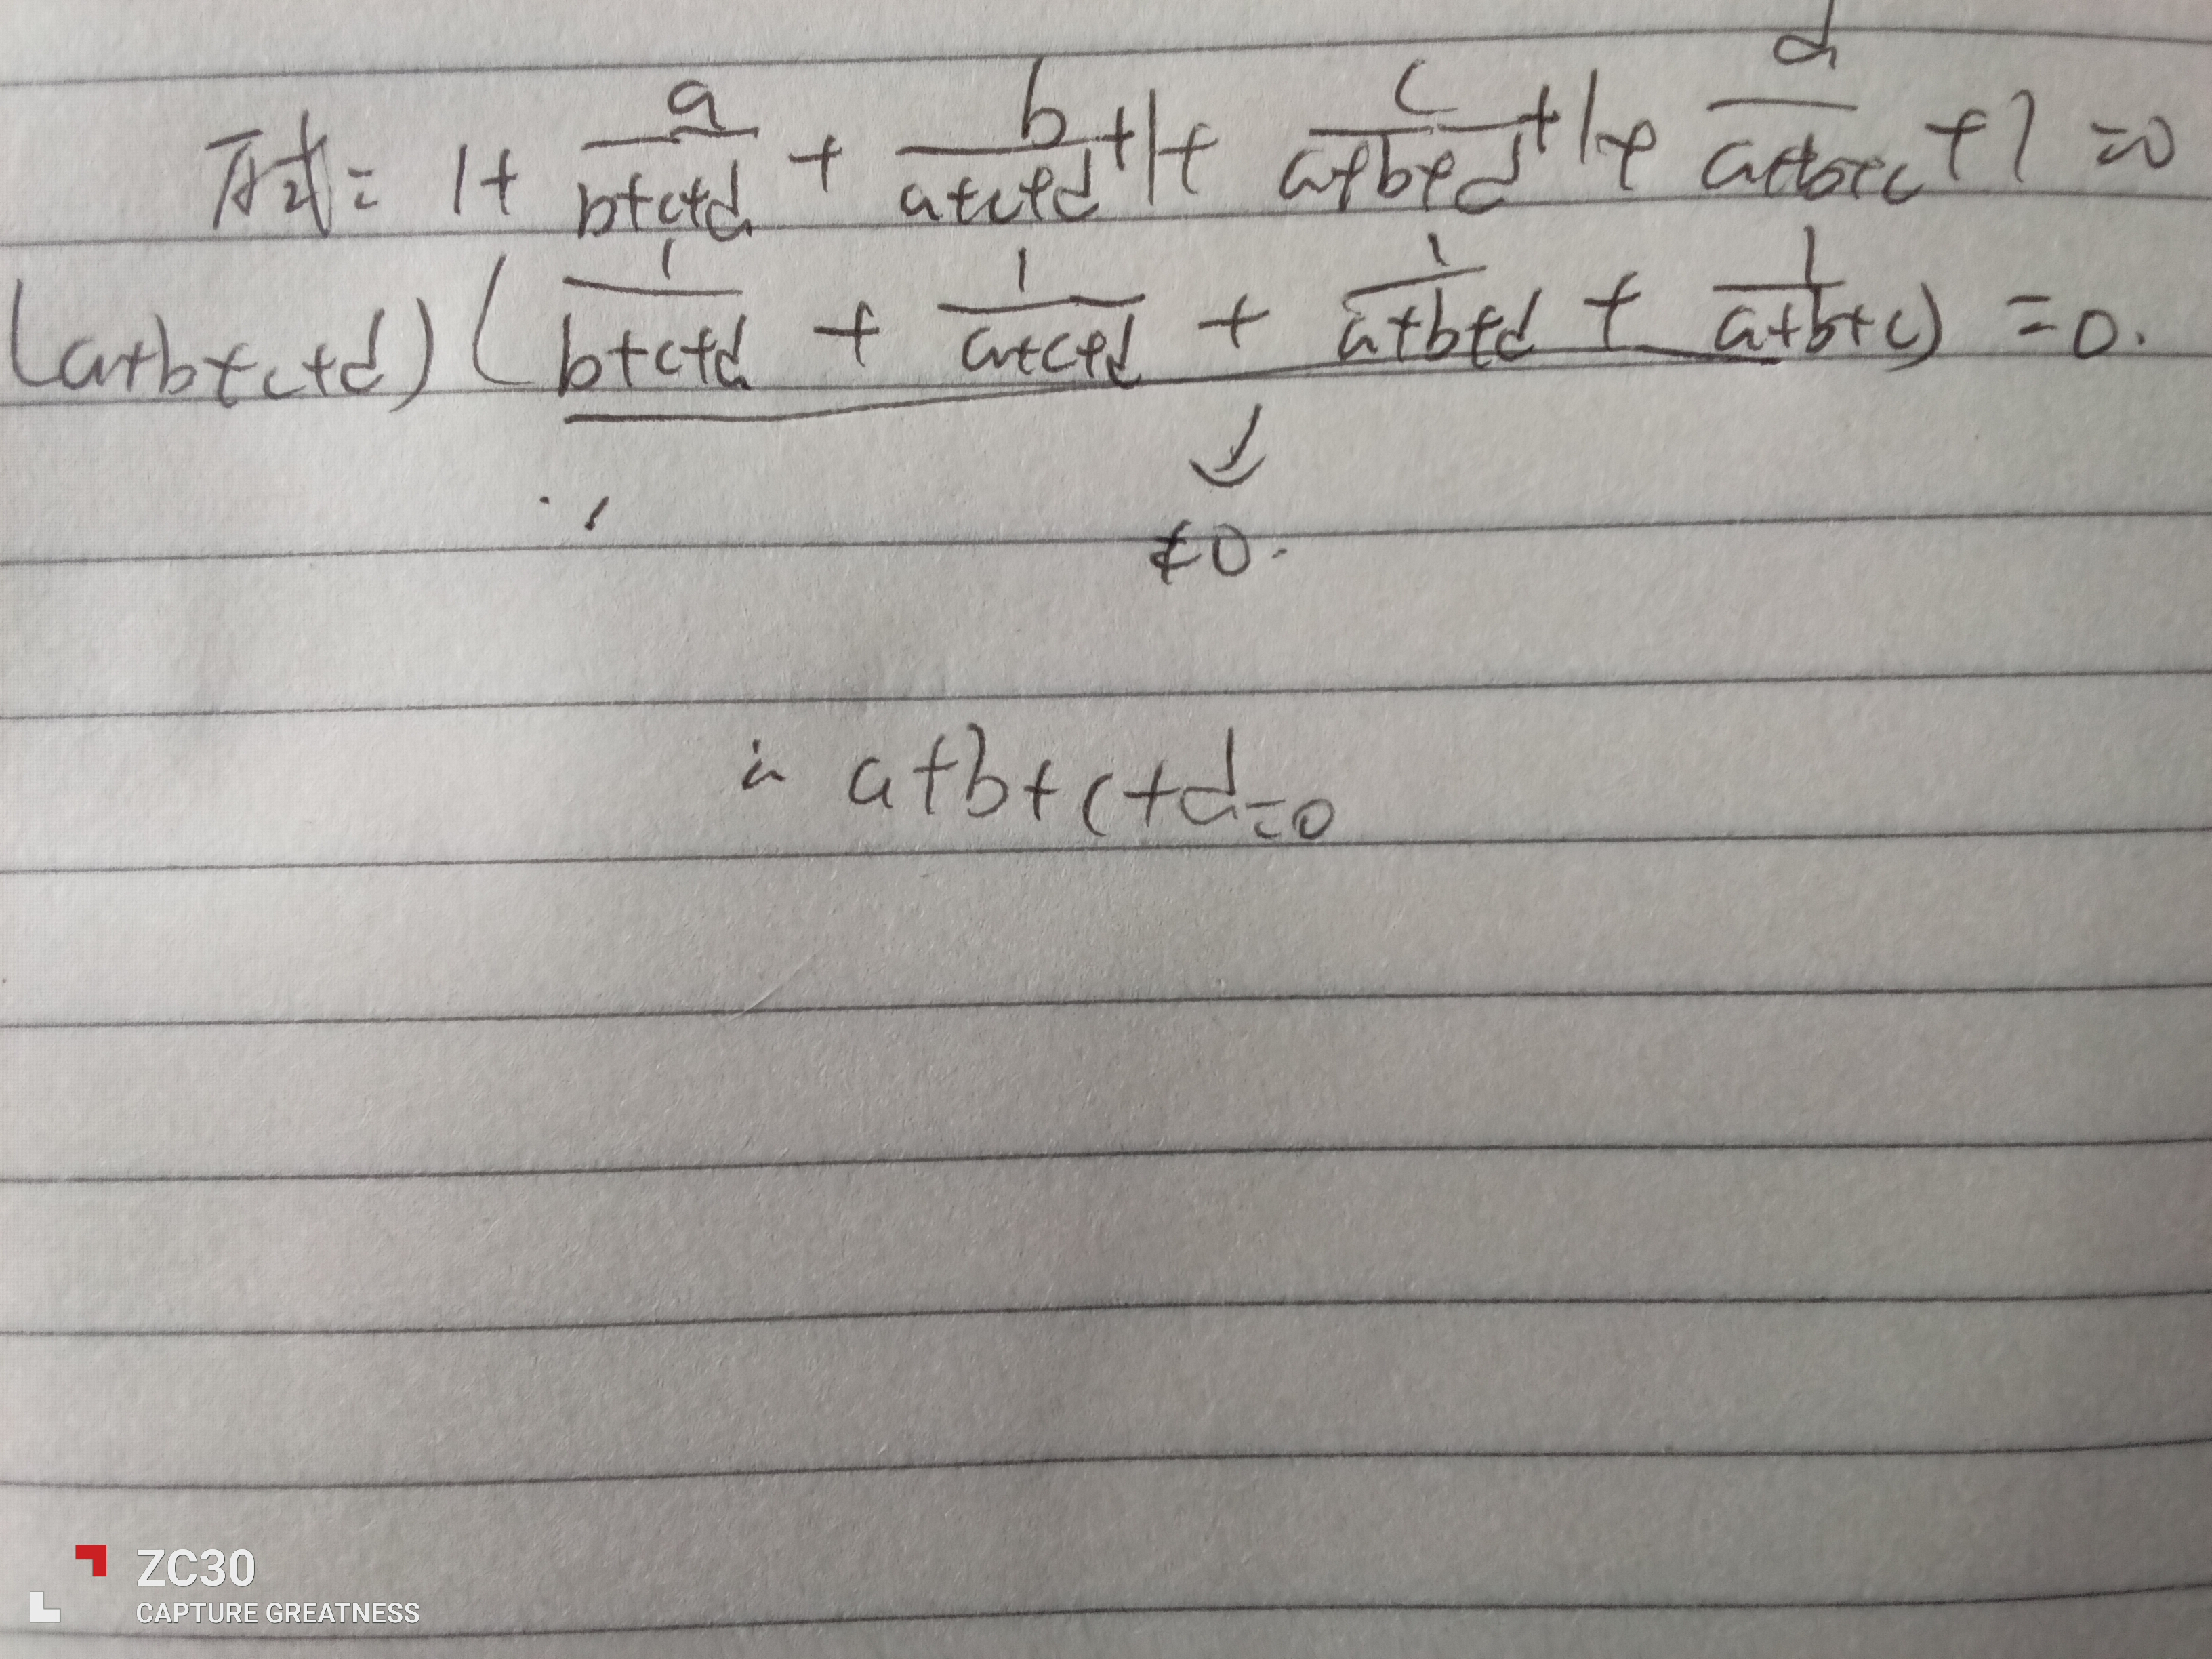 原式= 1+ a/(b+c+d) + b/(a+c+d) +1+ c/(a+b+d) +1+ d/(a+b+c) +1 =0
(a+b+c+d) ( 1/(b+c+d) + 1/(a+c+d) + 1/(a+b+d) + 1/(a+b+c) ) =0.
≠0.
∴ a+b+c+d=0
ZC30
CAPTURE GREATNESS